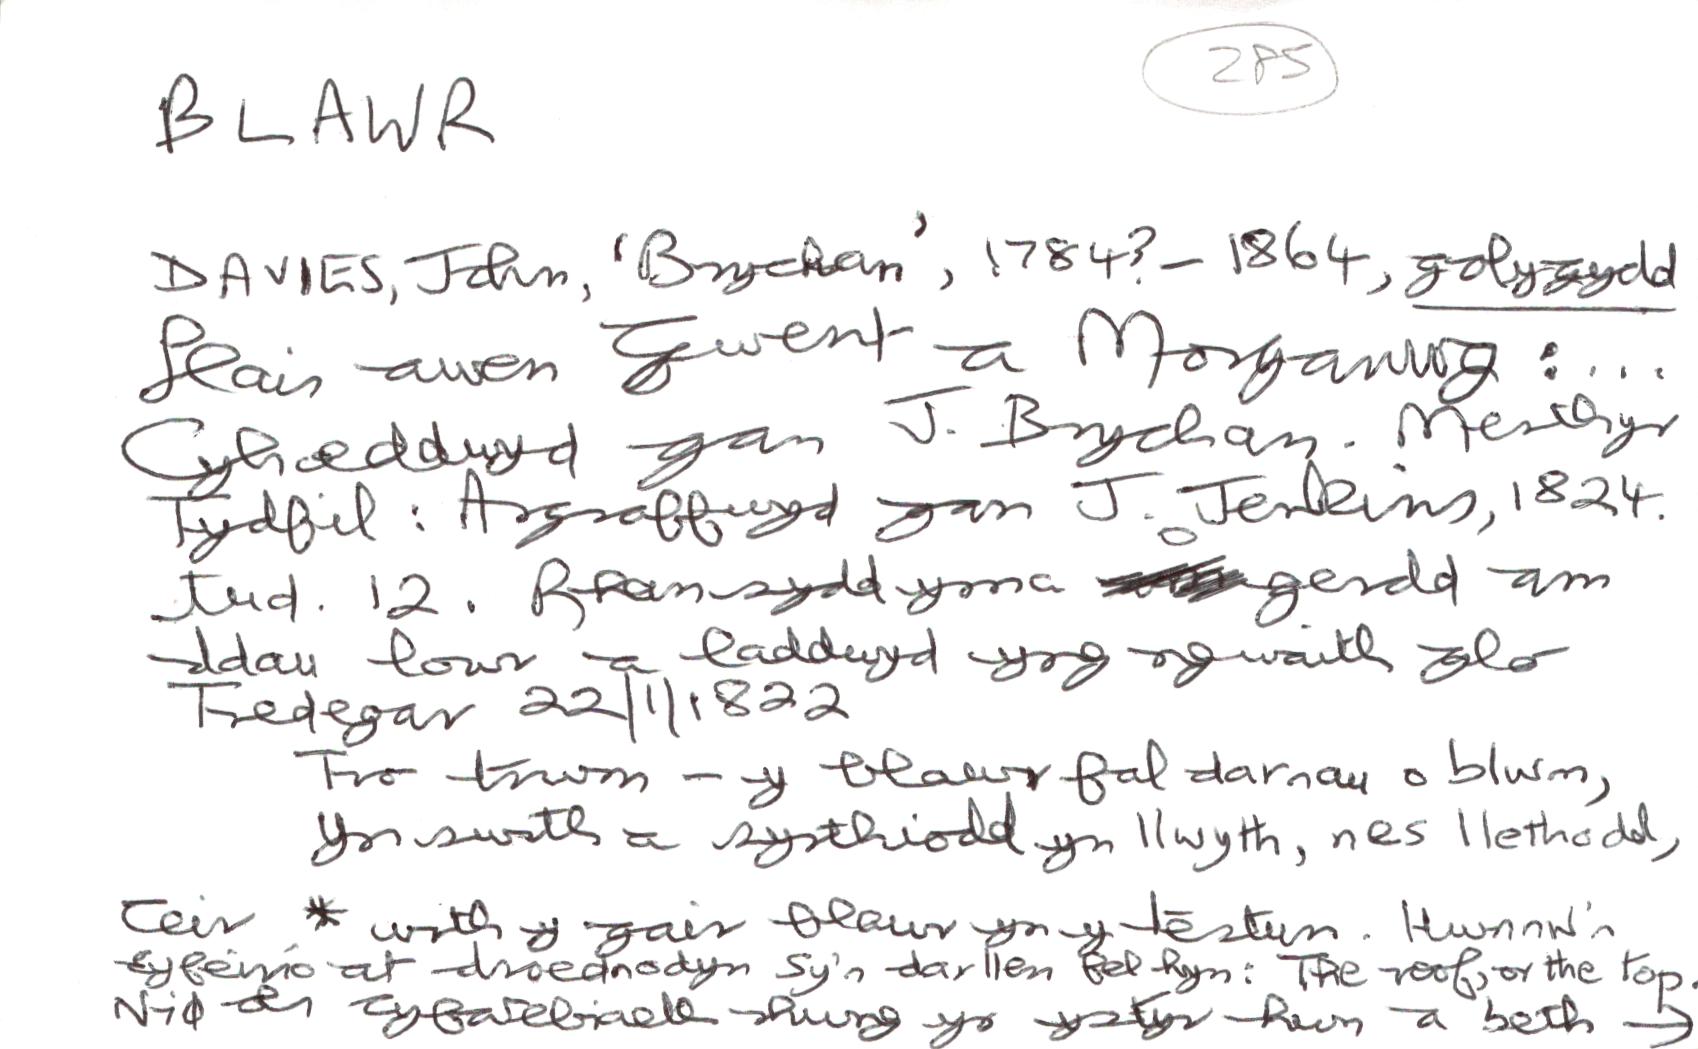 285
BLAWR
DAVIES, John, 'Brychan', 1784? – 1864, golygydd
Llais awen Gwent a Morganwg : ...
Cyhoeddwyd gan J. Brychan. Merthyr
Tydfil : Argraffwyd gan J. Jenkins, 1824.
tud. 12. Rhan sydd yma o gerdd am
ddau lowr a laddwyd yng ngwaith glo
Tredegar 22/1/1822
Tro trwm – y blawr fal darnau o blwm,
Yn swrth a syrthiodd yn llwyth, nes llethodd,
Ceir * wrth y gair blawr yn y testun. Hwnnw'n
cyfeirio at droednodyn sy'n darllen fel hyn: The roof, or the top.
Nid oes cyfatebiaeth rhwng yr ystyr hwn a beth →